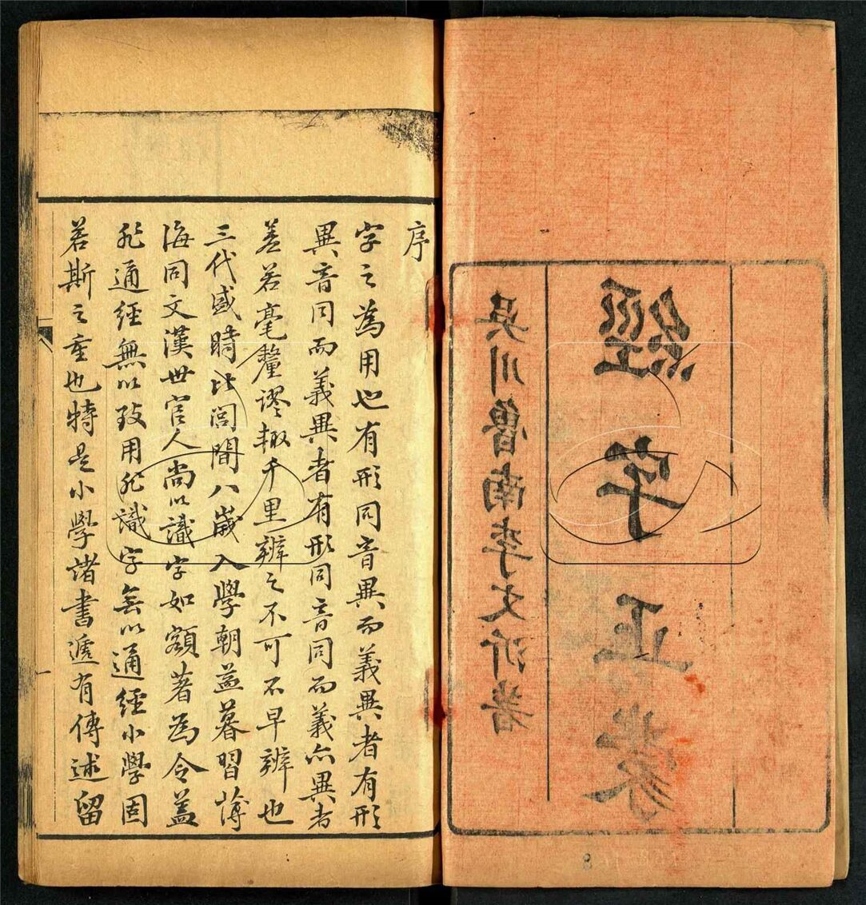 經字正蒙
吳川魯南李文沂著
序
字之為用也有形同音異而義異者有形
異音同而義異者有形同音同而義亦異者
差若毫釐謬輒千里辨之不可不早辨也
三代盛時比閭間八歲入學朝益暮習薄
海同文漢世官人尚以識字如額著為令蓋
非通經無以致用非識字無以通經小學固
若斯之重也特是小學諸書遞有傳述留